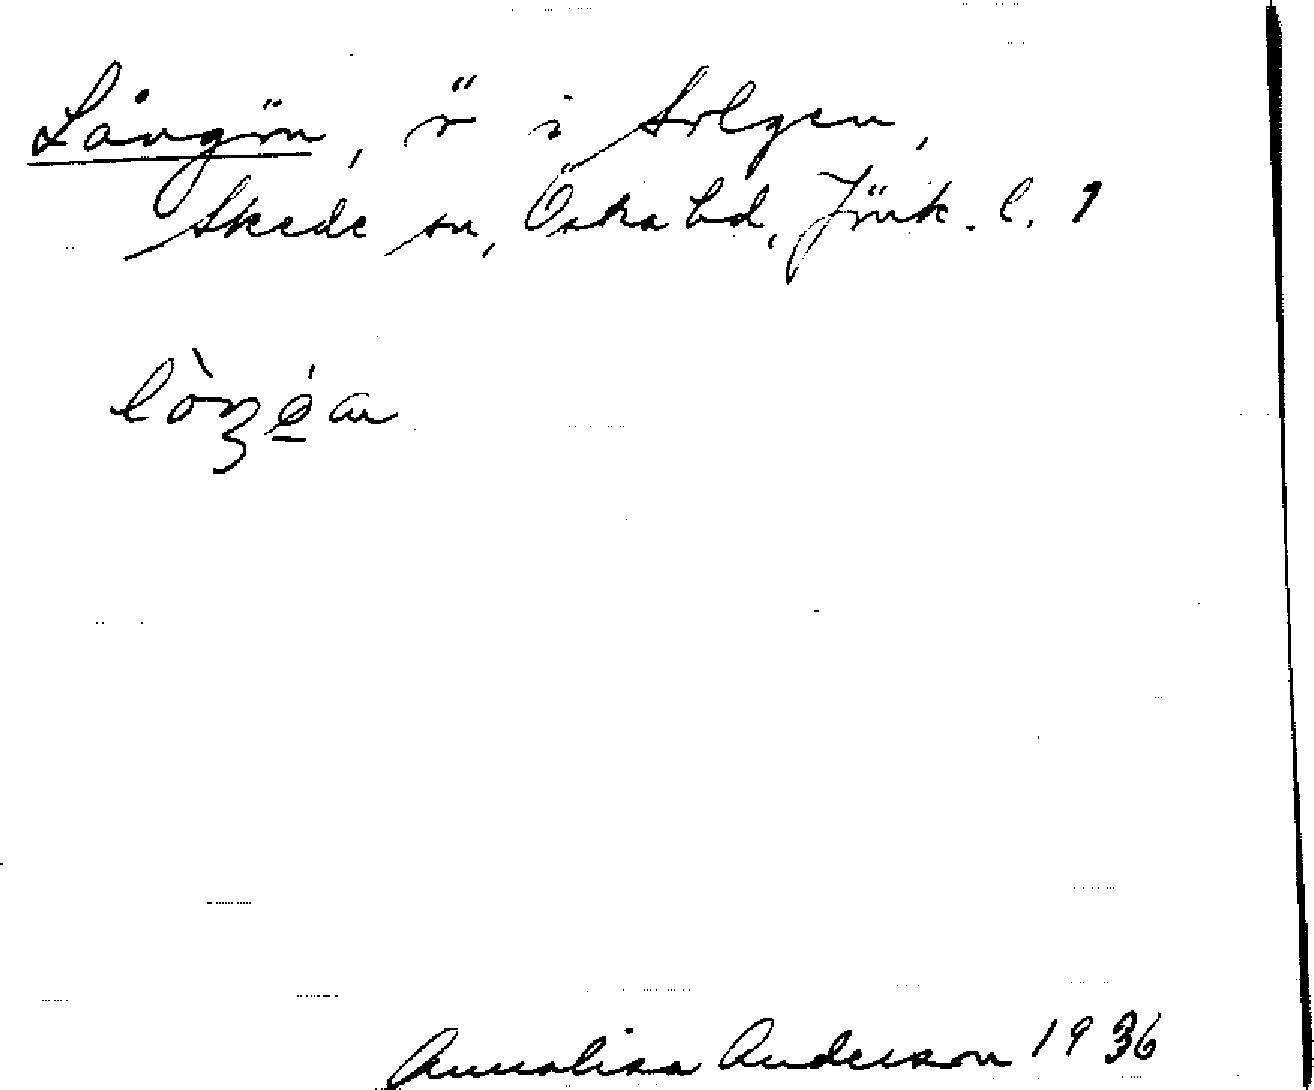 Långön, ö i Solgen,
Skede sn, Östra hd, Jönk. l. 1
Annalisa Anderson 1936